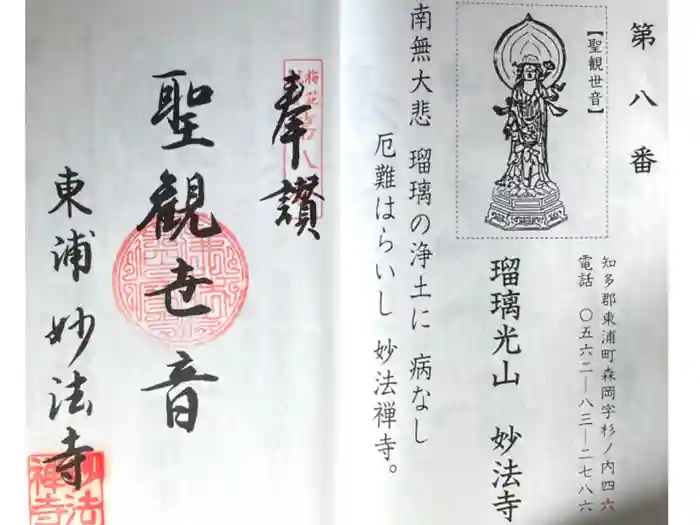 第八番
【聖観世音】
瑠璃光山 妙法寺
知多郡東浦町森岡字杉ノ内四六
電話 〇五六二―八三―二七八六
南無大悲 瑠璃の浄土に 病なし
厄難はらいし 妙法禅寺。
奉讃
聖観世音
東浦 妙法寺
妙法
禅寺